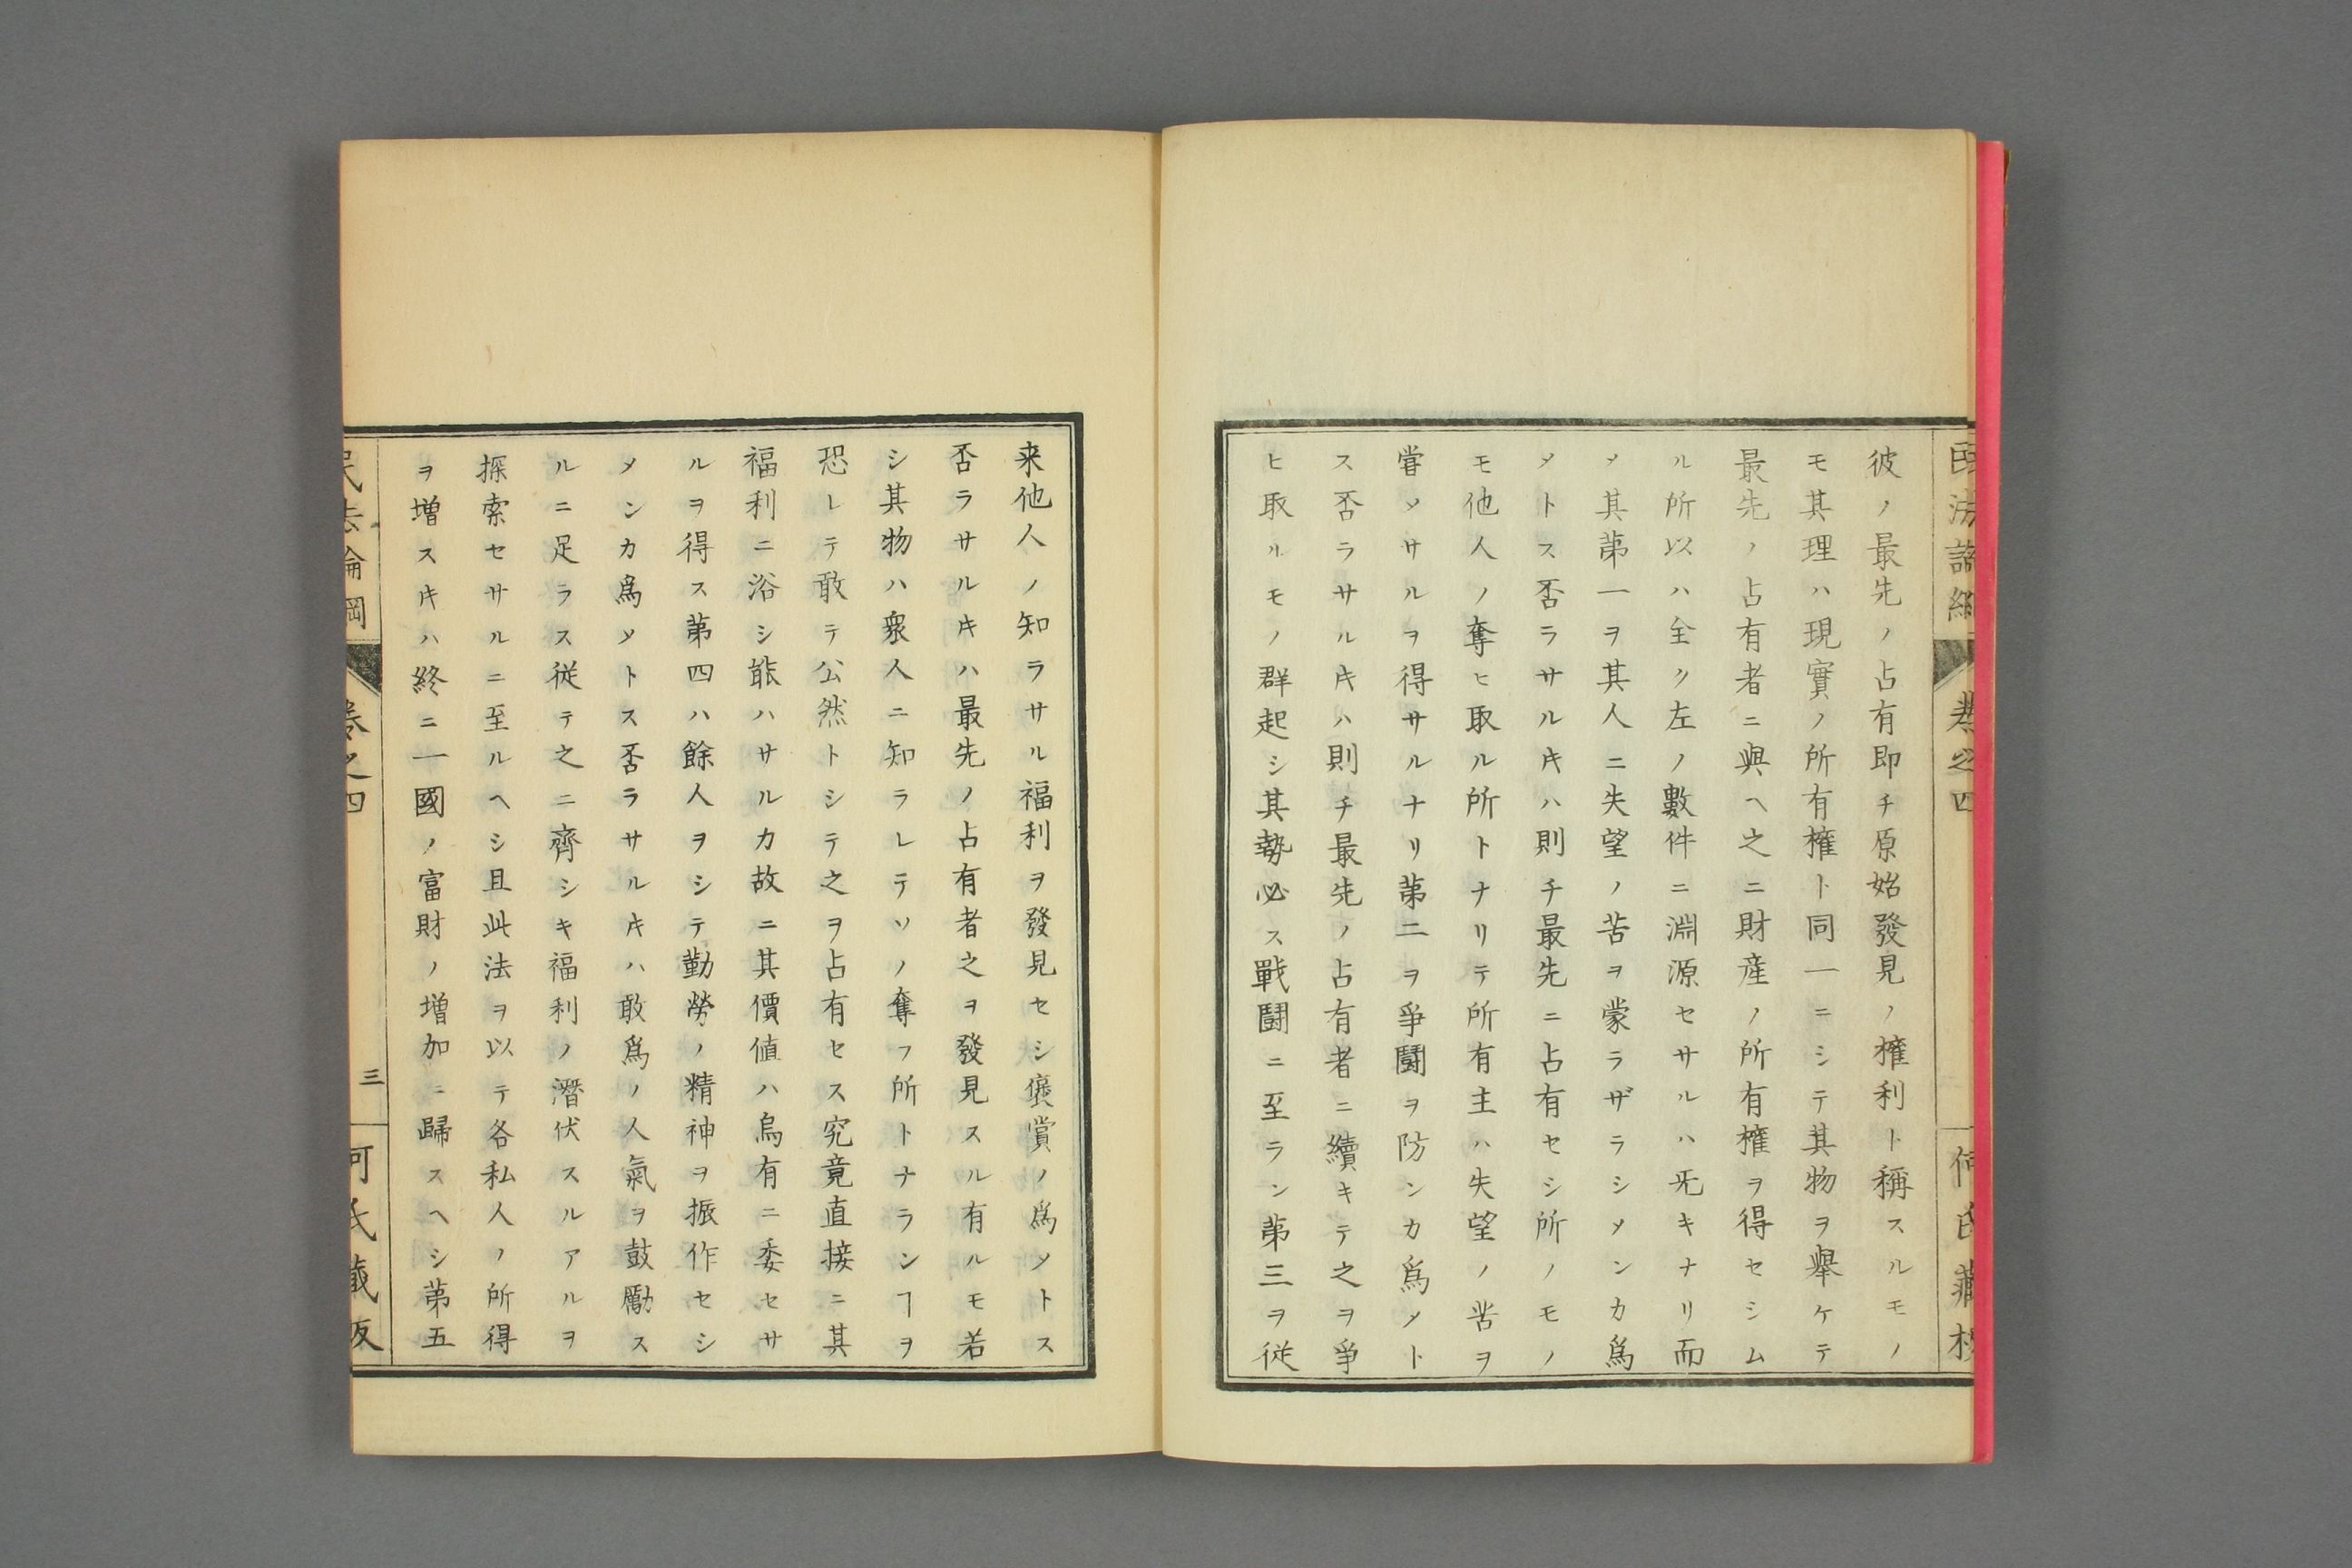 民法論綱
卷之四
何氏藏板
彼ノ最先ノ占有即チ原始發見ノ權利ト稱スルモノ
モ其理ハ現實ノ所有權ト同一ニシテ其物ヲ舉ケテ
最先ノ占有者ニ與ヘ之ニ財産ノ所有權ヲ得セシム
ル所以ハ全ク左ノ數件ニ淵源セサルハ旡キナリ而
メ其第一ヲ其人ニ失望ノ苦ヲ蒙ラザラシメンカ爲
メトス否ラサルキハ則チ最先ニ占有セシ所ノモノ
モ他人ノ奪ヒ取ル所トナリテ所有主ハ失望ノ苦ヲ
嘗メサルヲ得サルナリ第二ヲ爭鬪ヲ防ンカ爲メト
ス否ラサルキハ則チ最先ノ占有者ニ續キテ之ヲ爭
ヒ取ルモノ群起シ其勢必ス戰鬪ニ至ラン第三ヲ從
来他人ノ知ラサル福利ヲ發見セシ襃賞ノ爲メトス
否ラサルキハ最先ノ占有者之ヲ發見スル有ルモ若
シ其物ハ衆人ニ知ラレテソノ奪フ所トナランヿヲ
恐レテ敢テ公然トシテ之ヲ占有セス究竟直接ニ其
福利ニ浴シ能ハサルカ故ニ其價値ハ烏有ニ委セサ
ルヲ得ス第四ハ餘人ヲシテ勤勞ノ精神ヲ振作セシ
メンカ爲メトス否ラサルキハ敢爲ノ人氣ヲ鼓勵ス
ルニ足ラス從テ之ニ齊シキ福利ノ潛伏スルアルヲ
探索セサルニ至ルヘシ且此法ヲ以テ各私人ノ所得
ヲ增スキハ終ニ一國ノ富財ノ增加ニ歸スヘシ第五
民法論綱
卷之四
三
何氏藏板